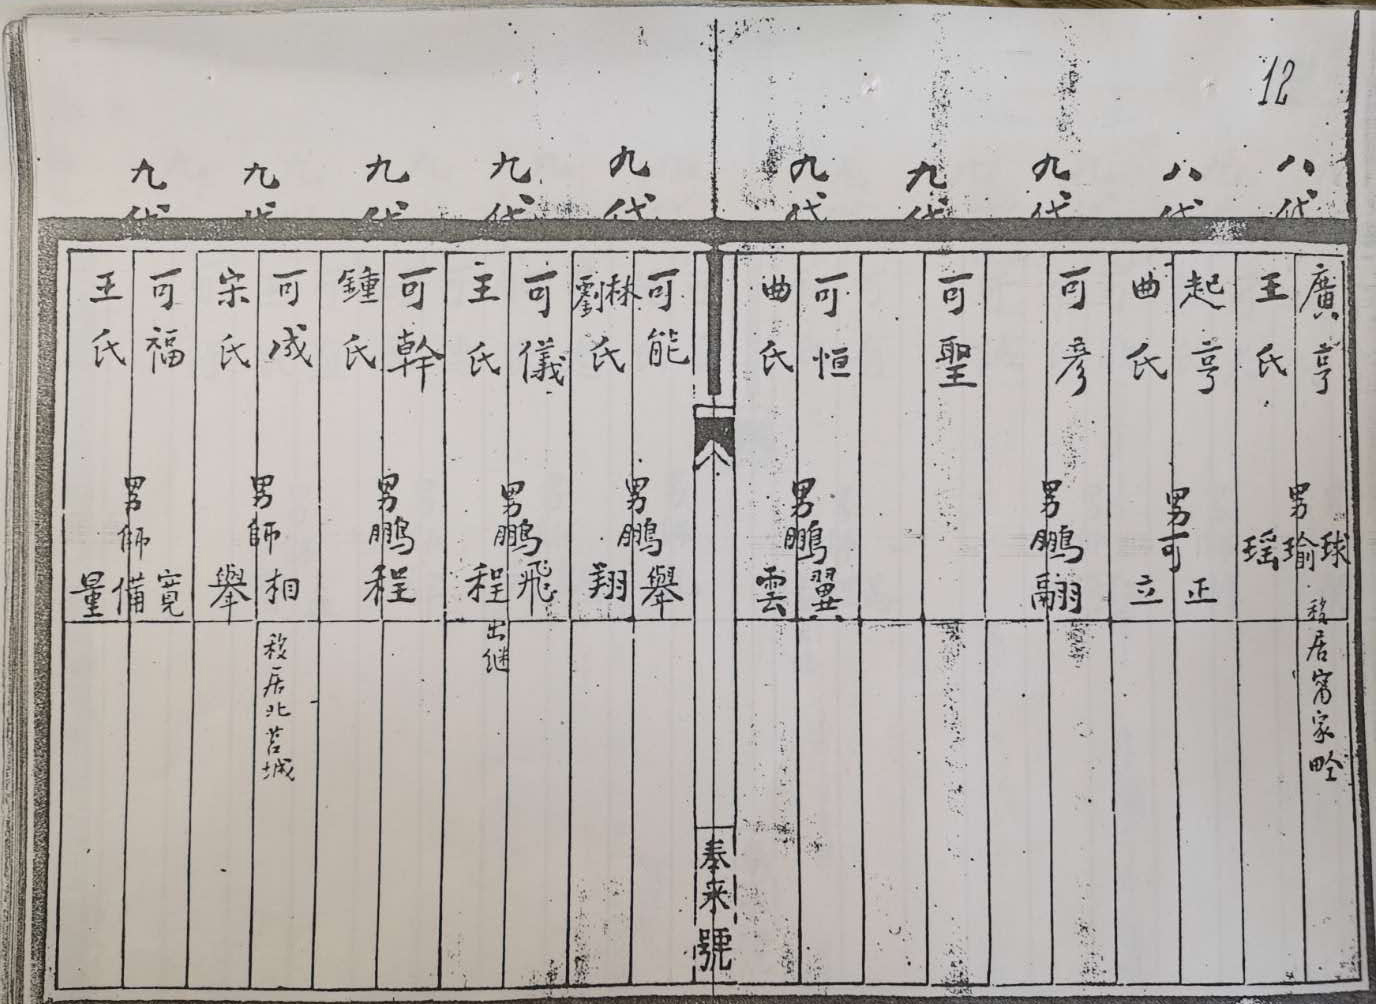 12
八代
廣亨
王氏
男球瑜瑶
移居甯家疃
八代
起亨
曲氏
男可正立
九代
可彦
男鹏翮
九代
可聖
九代
可恒
曲氏
男鵬翼雲
奉来號
九代
可能
林劉氏
男鵬舉翔
九代
可儀
王氏
男鵬飛程
出继
九代
可幹
鍾氏
男鵬程
九代
可成
宋氏
男師相舉
移居北莒城
九代
可福
王氏
男師寬備量